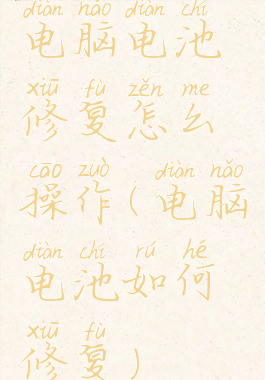 diàn nǎo diàn chí
电脑电池
xiū fù zěn me
修复怎么
cāo zuò diàn nǎo
操作(电脑
diàn chí rú hé
电池如何
xiū fù
修复)